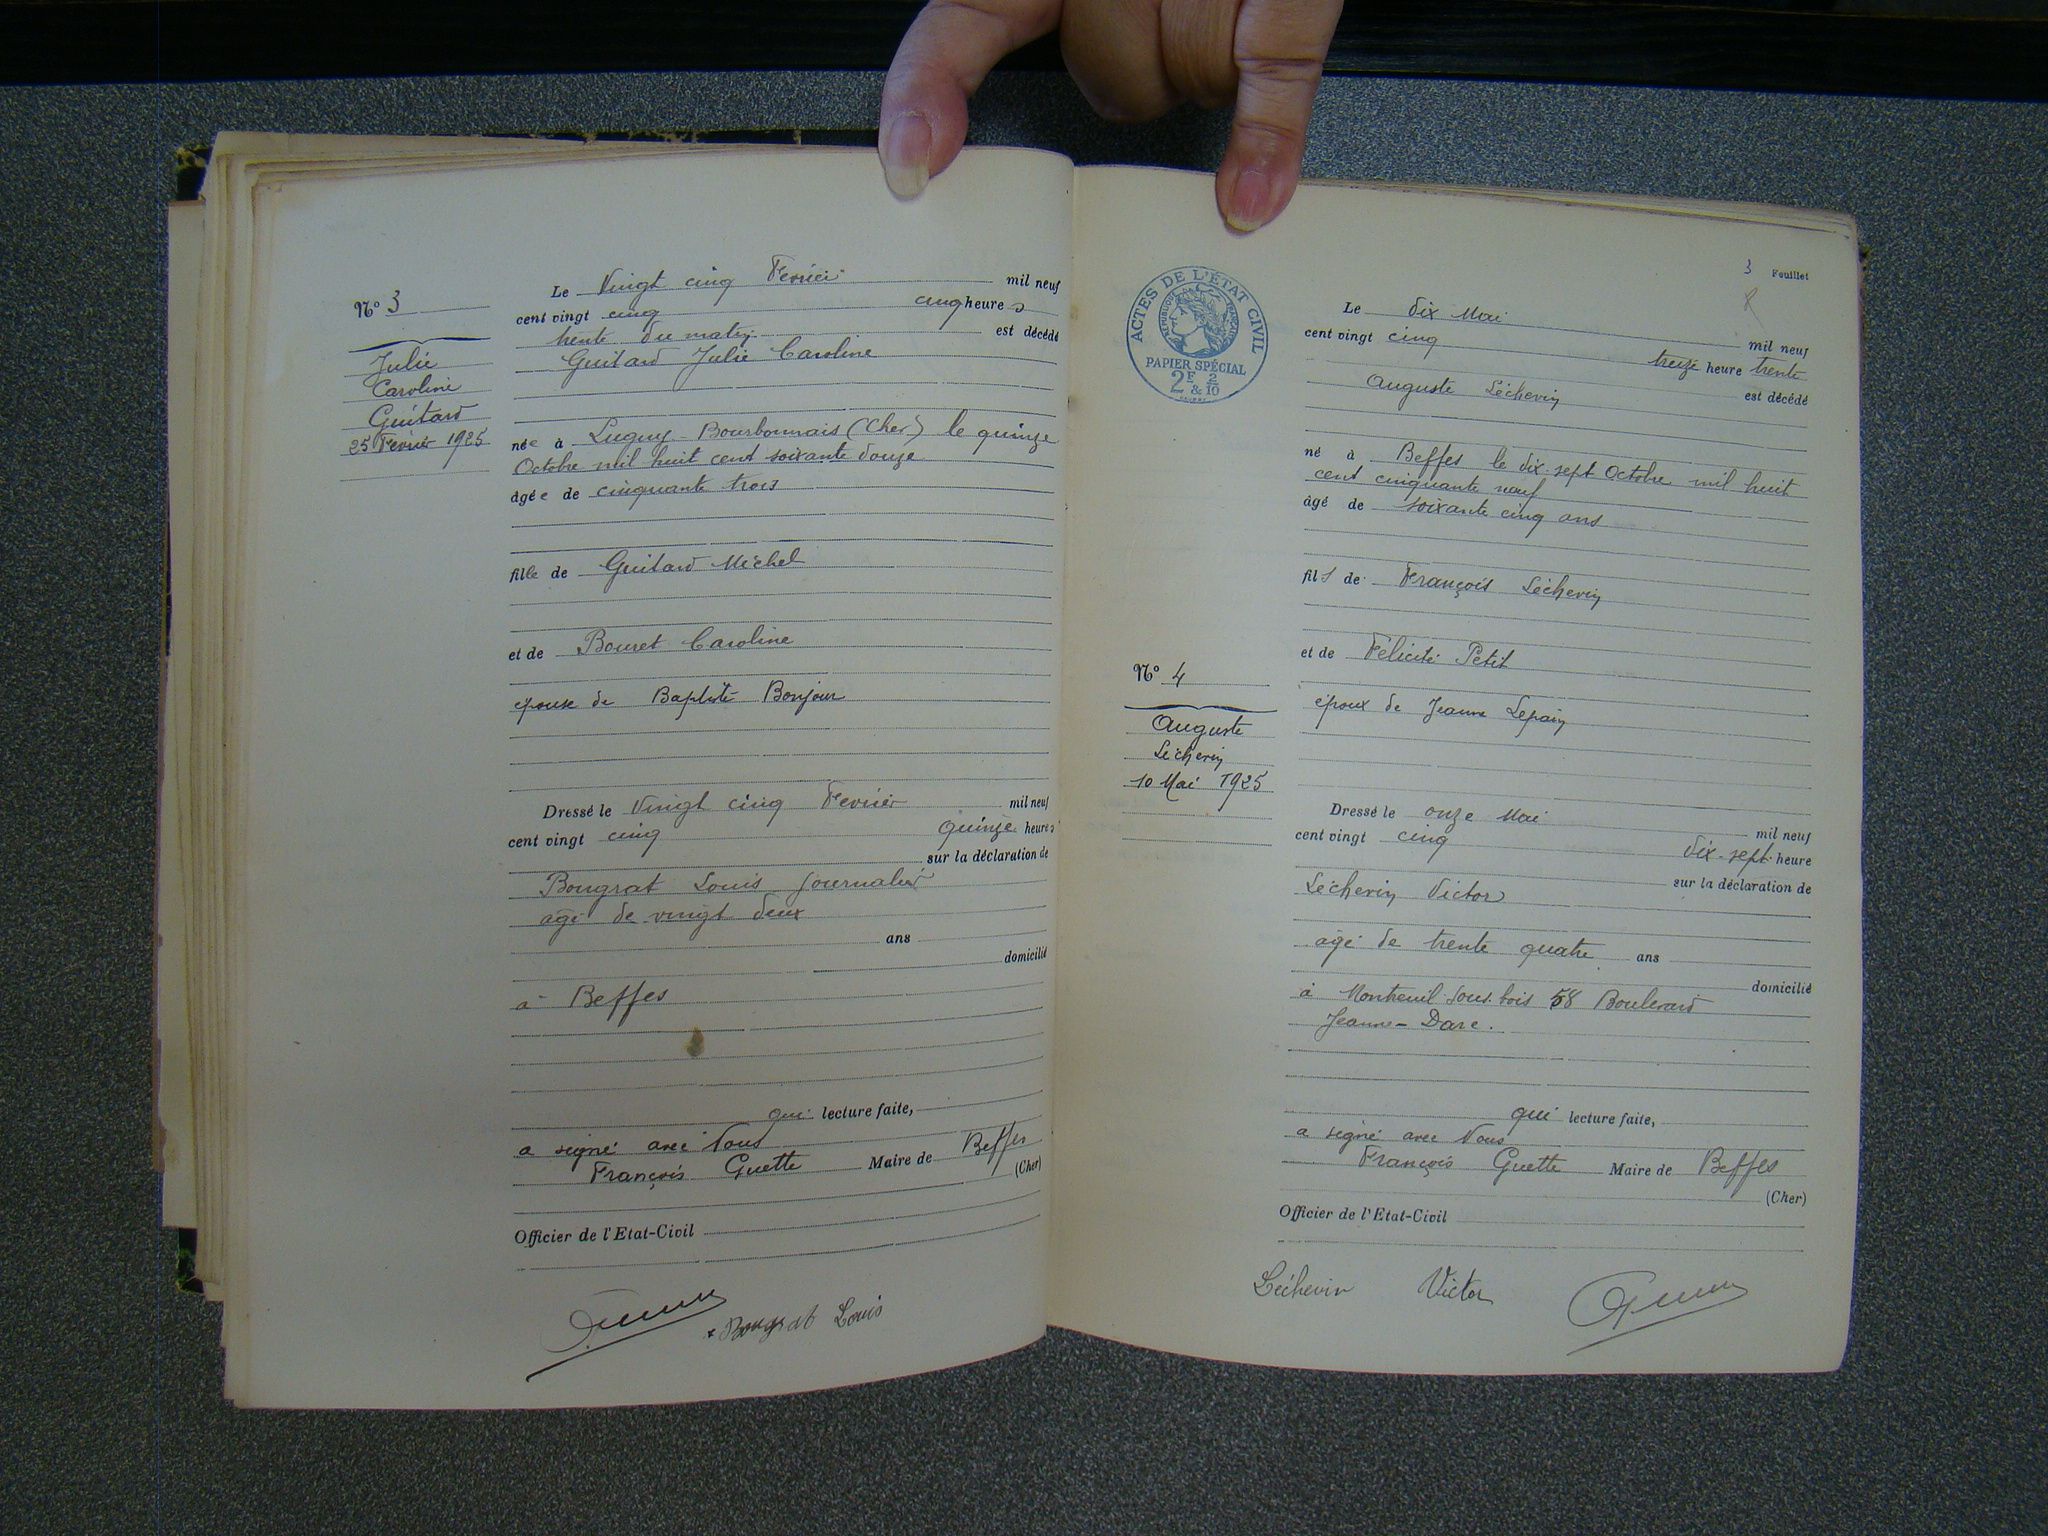 N° 3
Julie
Caroline
Guitard
25 Fevrier 1925
Le Vingt cinq Fevrier mil neuf
cent vingt cinq cinq heures
trente du matin est décédé
Guitard Julie Caroline
née à Lugny-Bourbonnais (Cher) le quinze
Octobre mil huit cent soixante douze
âgée de cinquante trois
fille de Guitard Michel
et de Bouret Caroline
épouse de Baptiste Bonjour
Dressé le Vingt cinq Fevrier mil neuf
cent vingt cinq quinze heures
sur la déclaration de
Bougrat Louis journalier
agé de vingt deux
ans
domicilié
à Beffes
qui lecture faite,
a signé avec Nous
François Guette Maire de Beffes
(Cher)
Officier de l'Etat-Civil
Bougrat Louis
3 Feuillet
8
ACTES DE L'ÉTAT CIVIL
RÉPUBLIQUE FRANÇAISE
PAPIER SPÉCIAL
2F & 2/10
N° 4
Auguste
Léchevin
10 Mai 1925
Le dix Mai mil neuf
cent vingt cinq treize heure trente
Auguste Léchevin est décédé
né à Beffes le dix-sept Octobre mil huit
cent cinquante neuf
âgé de soixante cinq ans
fils de François Léchevin
et de Félicité Petit
époux de Jeanne Lepain
Dressé le onze Mai mil neuf
cent vingt cinq dix-sept heure
sur la déclaration de
Léchevin Victor
agé de trente quatre ans
domicilié
à Montreuil-sous-bois 58 Boulevard
Jeanne-Darc.
qui lecture faite,
a signé avec Nous
François Guette Maire de Beffes
(Cher)
Officier de l'Etat-Civil
Léchevin Victor